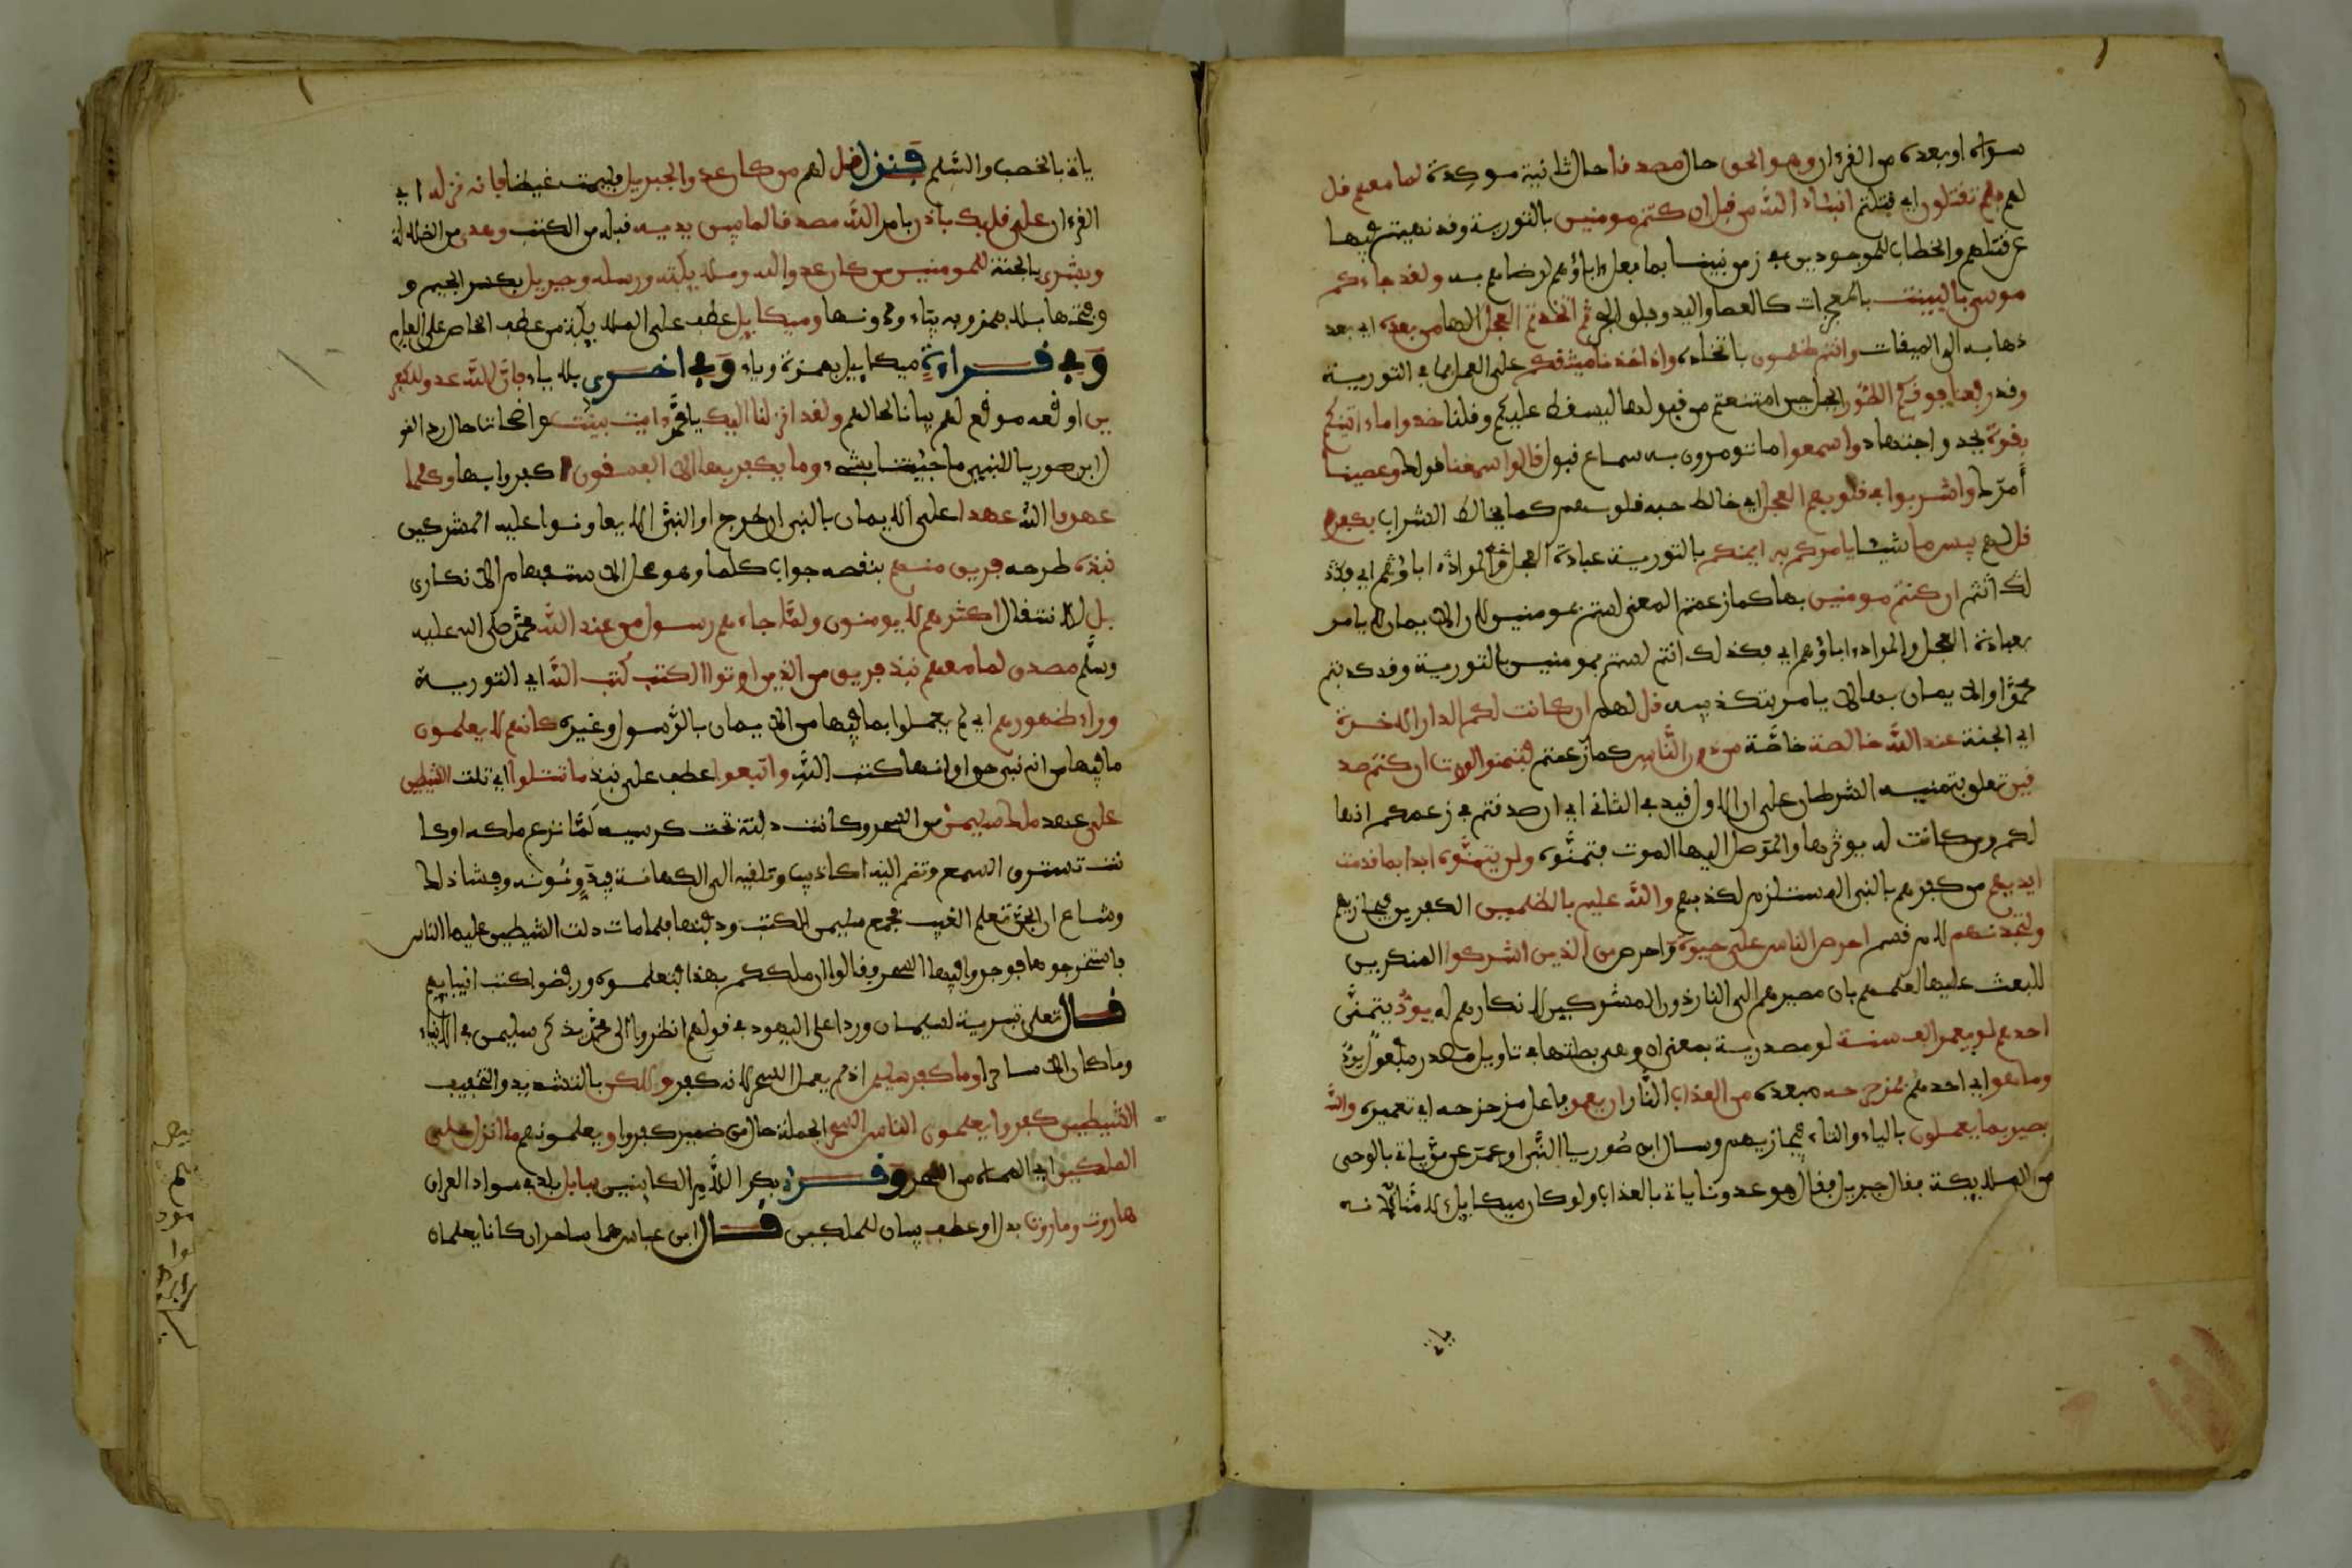 سواه او بعده من القرءان وهو الحق حال مصدقا حال ثانية موكدة لما معهم قل
لهم فلم تقتلون اي قتلتم انبياء الله من قبل ان كنتم مومنين بالتورية وقد نهيتم فيها
عن قتلهم والخطاب للموجودين في زمن نبينا بما فعل ءاباؤهم لرضاهم به ولقد جاءكم
موسى بالبينت بالمعجزات كالعصا واليد وفلق البحر ثم اتخذتم العجل الها من بعده اي بعد
ذهابه الى الميقات وانتم ظلمون باتخاذه واذ اخذنا ميثقكم على العمل بما في التورية
وقد رفعنا فوقكم الطور الجبل حين امتنعتم من قبولها ليسقط عليكم وقلنا خذوا ما ءاتينكم
بقوة بجد واجتهاد واسمعوا ما تومرون به سماع قبول قالوا سمعنا قولك وعصينا
أمرك واشربوا في قلوبهم العجل اي خالط حبه قلوبهم كما يخالط الشراب بكفرهم
قل لهم بيسما شيئا يامركم به ايمنكم بالتورية عبادة العجل والمراد ءاباؤهم اي فكذ
لك انتم ان كنتم مومنين بها كما زعمتم المعنى لستم بمومنين لان الايمان لا يامر
بعبادة العجل والمراد ءاباؤهم اي فكذلك انتم لستم بمومنين بالتورية وقد كذبتم
محمدا والايمان بها لا يامر بتكذيبه قل لهم ان كانت لكم الدار الاخرة
اي الجنة عند الله خالصة خاصة من دون الناس كما زعمتم فتمنوا الموت ان كنتم صد
قين تعلق بتمنيه الشرطان على ان الاول قيد في الثاني اي ان صدقتم في زعمكم انها
لكم ومن كانت له يوثرها والموصل اليها الموت فتمنوه ولن يتمنوه ابدا بما قدمت
ايديهم من كفرهم بالنبي المستلزم لكذبهم والله عليم بالظلمين الكفرين فيجازيهم
ولتجدنهم لام قسم احرص الناس على حيوة واحرص من الذين اشركوا المنكرين
للبعث عليها لعلمهم بان مصيرهم الى النار دون المشركين لانكارهم له يود يتمنى
احدهم لو يعمر الف سنة لو مصدرية بمعنى ان وهي بصلتها في تاويل مصدر مفعول يود
وما هو اي احدهم بمزحزحه مبعده من العذاب النار ان يعمر فاعل مزحزحه اي تعميره والله
بصير بما يعملون بالياء والتاء فيجازيهم وسال ابن صوريا النبي او عمر عن من ياتي بالوحي
من المليكة فقال جبريل فقال هو عدونا ياتي بالعذاب ولو كان ميكايل لامنا لانه
ياتي
ياتي بالخصب والسلم فنزل قل لهم من كان عدوا لجبريل فليمت غيظا فانه نزله اي
القرءان على قلبك باذن بامر الله مصدقا لما بين يديه قبله من الكتب وهدى من الضلالة
وبشرى بالجنة للمومنين من كان عدوا لله ومليكته ورسله وجبريل بكسر الجيم و
وفتحها بلا همز وبه بياء ودونها وميكايل عطف على المليكة من عطف الخاص على العام
وفي قراءة ميكاييل بهمزة وياء وفي اخرى بلا ياء فان الله عدو للكفر
ين اوقعه موقع لهم بيانا لحالهم ولقد انزلنا اليك يا محمد ءايت بينت واضحات حال رد القو
ل ابن صوريا للنبي ما جئتنا بشيء وما يكفر بها الا الفسقون ا كفروا بها وكلما
عهدوا الله عهدا على الايمان بالنبي ان خرج او النبي الا يعاونوا عليه المشركين
نبذه طرحه فريق منهم بنقضه جواب كلما وهو محل الاستفهام الانكاري
بل للانتقال اكثرهم لا يومنون ولما جاءهم رسول من عند الله محمد صلى الله عليه
وسلم مصدق لما معهم نبذ فريق من الذين اوتوا الكتب كتب الله اي التورية
وراء ظهورهم اي لم يعملوا بما فيها من الايمان بالرسول وغيره كانهم لا يعلمون
ما فيها من انه نبي حق او انها كتب الله واتبعوا عطف على نبذ ما تتلوا اي تلت الشيطين
على عهد ملك سليمن من السحر وكانت دفنته تحت كرسيه لما نزع ملكه او كا
نت تسترق السمع وتضم اليه اكاذيب وتلقيه الى الكهانة فيدونونه وفشا ذلك
وشاع ان الجن تعلم الغيب فجمع سليمن الكتب ودفنها فلما مات دلت الشيطين عليها الناس
فاستخرجوها فوجدوا فيها السحر وقالوا انما ملككم بهذا فتعلموه ورفضوا كتب انبيايهم
قال تعلى تبرية لسليمان وردا على اليهود في قولهم انظروا الى محمد يذكر سليمن في الانبياء
وما كان الا ساحرا وما كفر سليمن اذ لم يعمل السحر لانه كفر ولكن بالتشديد والتخفيف
الشيطين كفروا يعلمون الناس السحر الجملة حال من ضمير كفروا ويعلمونهم ما انزل على
الملكين اي الهماه من السحر وقرئ بكسر اللام الكاينين ببابل بلد في سواد العراق
هاروت وماروت بدل او عطف بيان للملكين قال ابن عباس هما ساحران كانا يعلمان